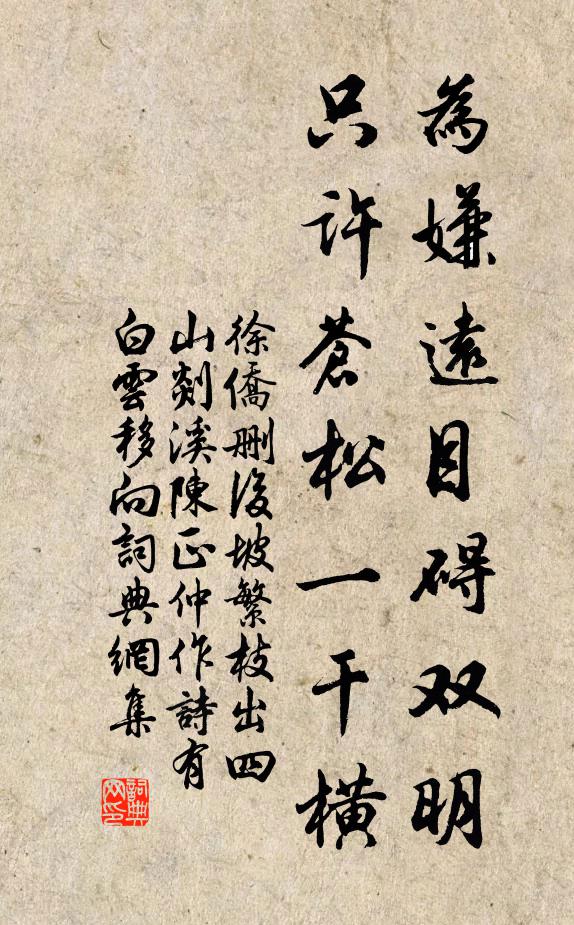 為嫌遠目碍双明
只许蒼松一干橫
徐僑刪後坡繁枝出四
山剡溪陳正仲作詩有
白雲移向詞典網集
詞典网印